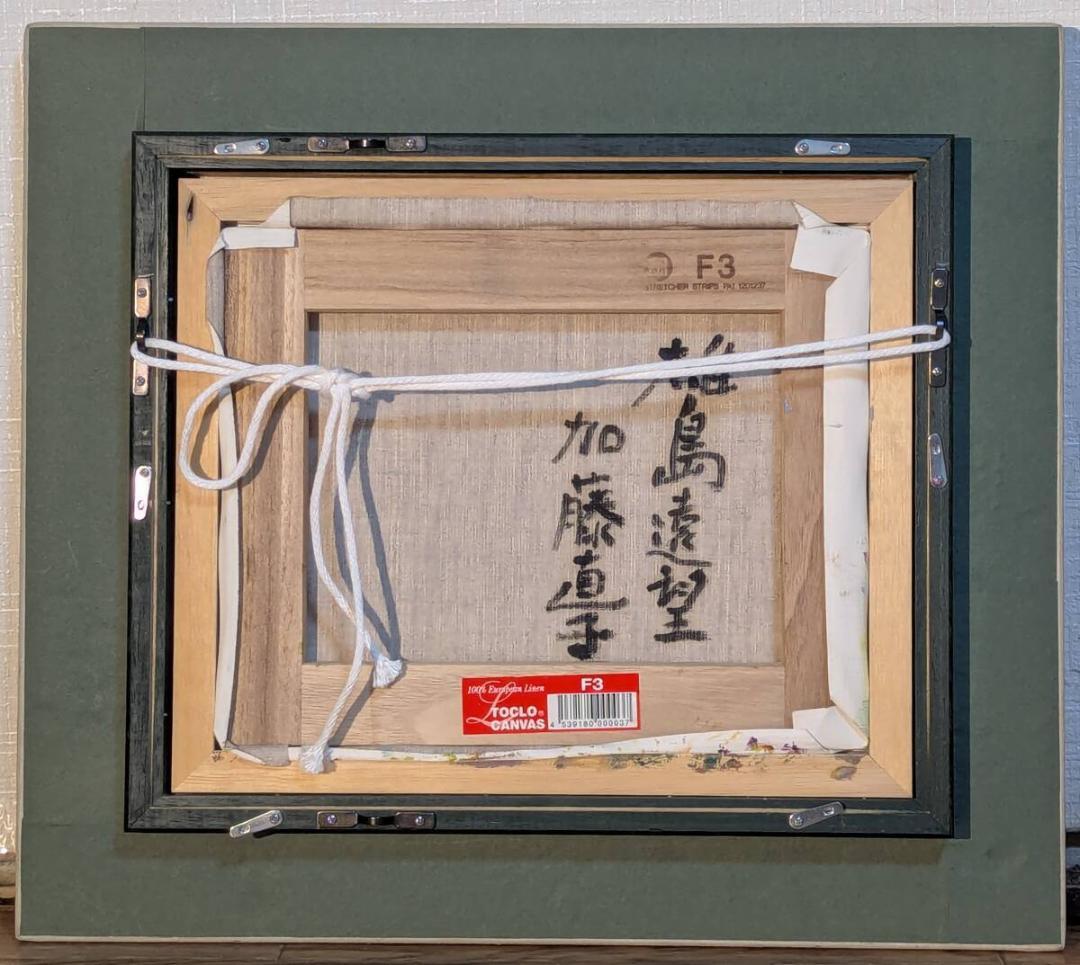 F3
STRETCHER STRIPS PAT 1201237
雄島遠望
加藤直子
100% European Linen
F3
L
TOCLO®
CANVAS
4 539180 000037